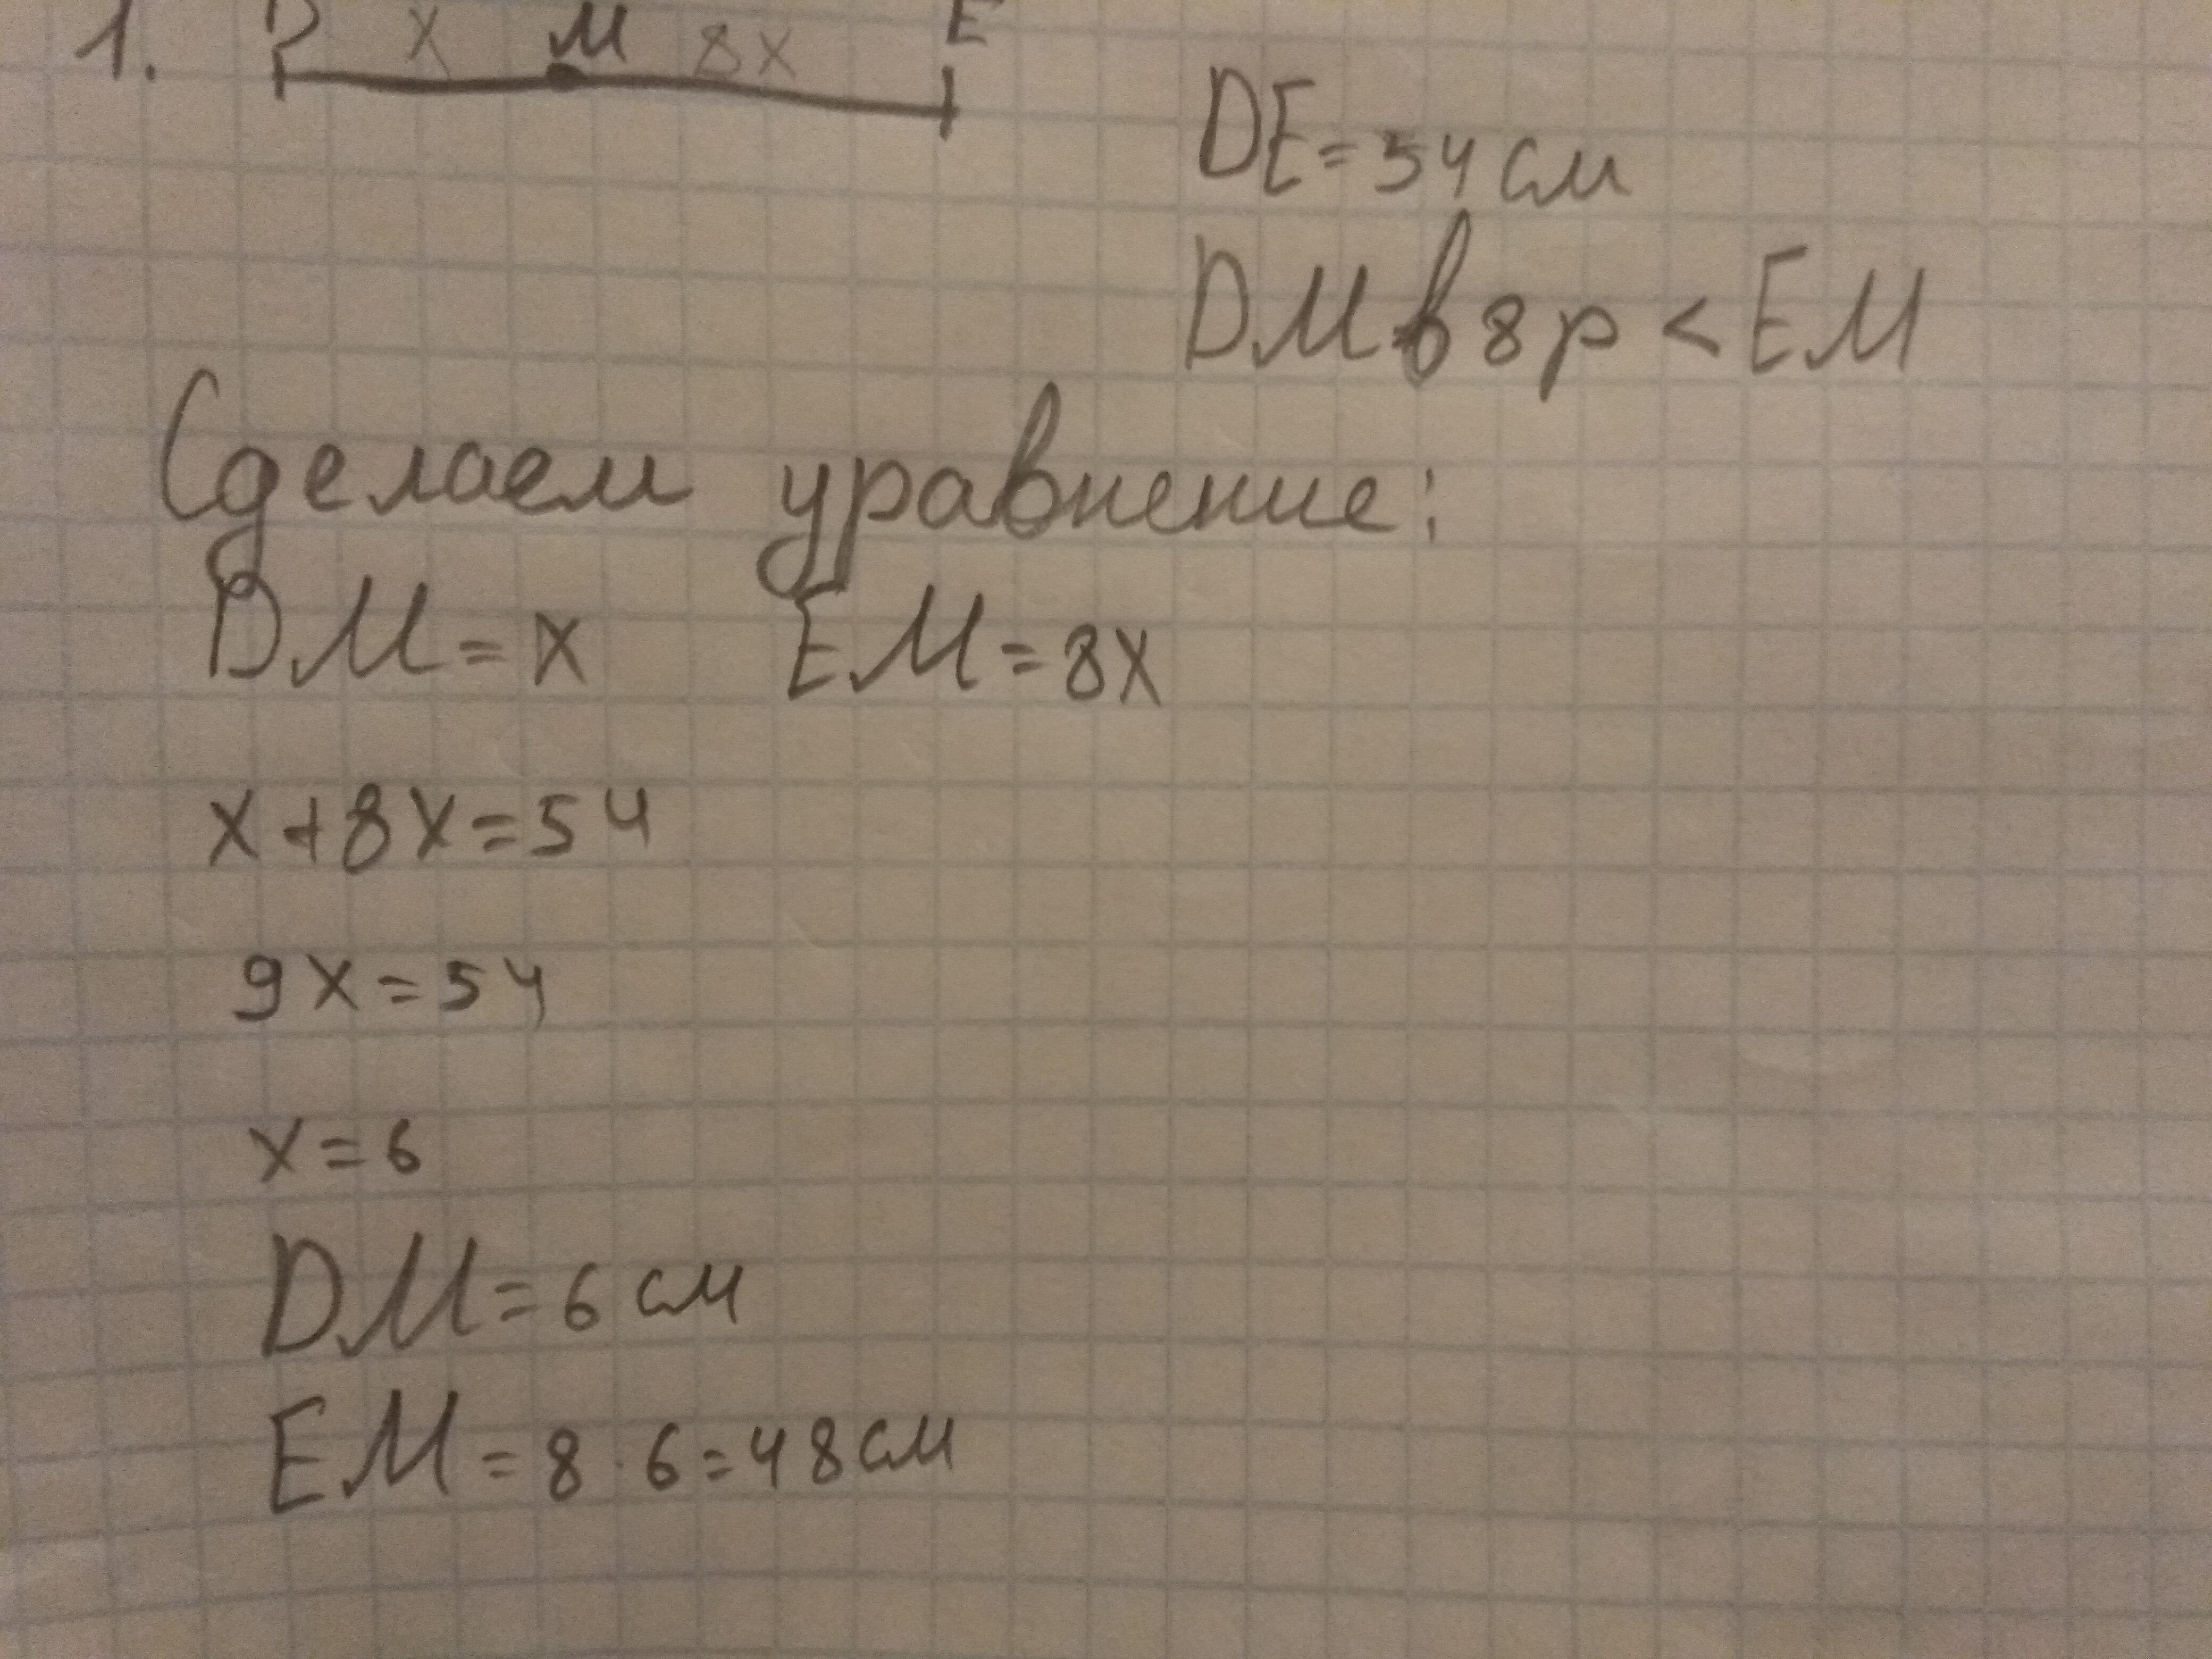 1. D x M 8x E
DE = 54 см
DM в 8 р < EM
Сделаем уравнение:
DM = x EM = 8x
x + 8x = 54
9x = 54
x = 6
DM = 6 см
EM = 8 · 6 = 48 см